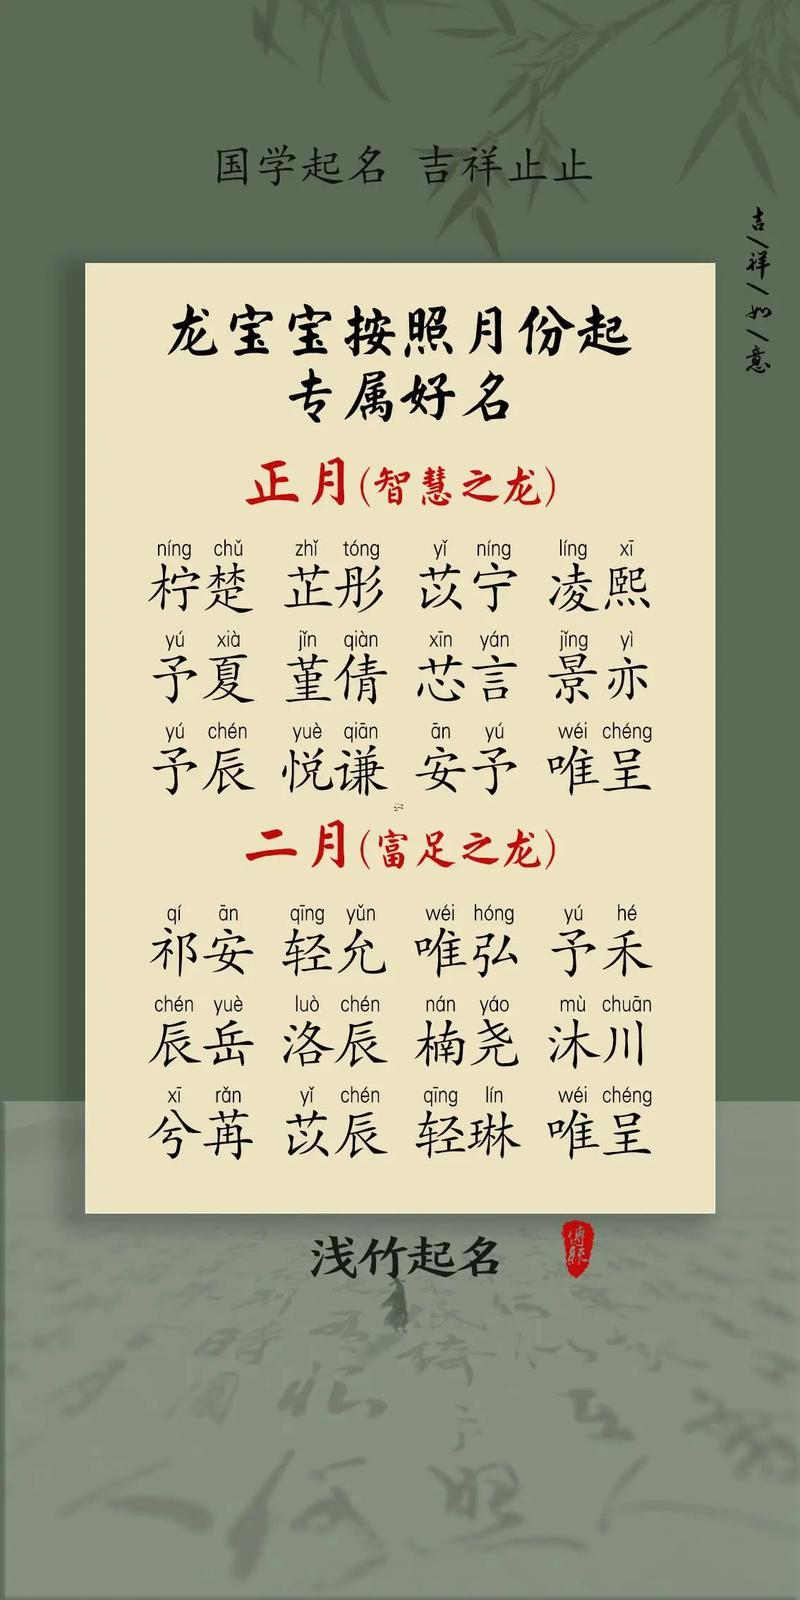 国学起名 吉祥止止
吉/祥/如/意
龙宝宝按照月份起
专属好名
正月(智慧之龙)
níng chǔ zhǐ tóng yǐ níng líng xī
柠楚 芷彤 苡宁 凌熙
yú xià jǐn qiàn xīn yán jǐng yì
予夏 堇倩 芯言 景亦
yú chén yuè qiān ān yú wéi chéng
予辰 悦谦 安予 唯呈
二月(富足之龙)
qí ān qīng yǔn wéi hóng yú hé
祁安 轻允 唯弘 予禾
chén yuè luò chén nán yáo mù chuān
辰岳 洛辰 楠尧 沐川
xī rǎn yǐ chén qīng lín wéi chéng
兮苒 苡辰 轻琳 唯呈
浅竹起名
傳統